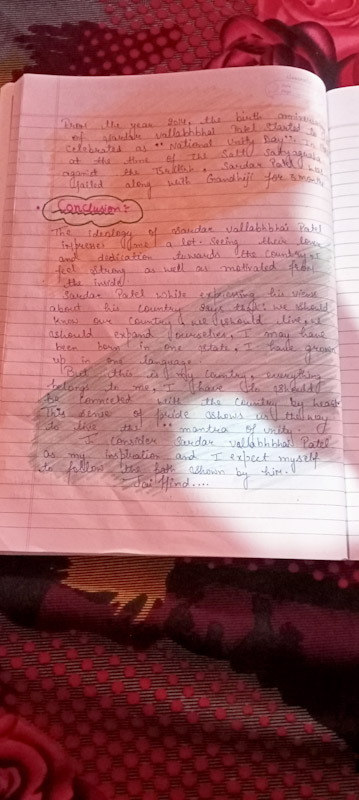 From the year 2014, the birth anniversary
of Sardar Vallabhbhai Patel started to
celebrated as "National Unity Day". In
at the time of the Salt Satyagraha
against the British, Sardar Patel was
jailed along with Gandhiji for
Conclusion:
The ideology of Sardar Vallabhbhai Patel
impresses me a lot. Seeing their love
and dedication towards the country, I
feel strong as well as motivated from
the inside.
Sardar Patel while expressing his views
about his country says that, we should
know our country, we should live, we
should expand ourselves. I may have
been born in one state, I have grown
up in one language.
But this is my country, everything
belongs to me. I have to should
be connected with the country by heart.
This sense of pride shows us the way
to live the "mantra of unity.
I consider Sardar Vallabhbhai Patel
as my inspiration and I expect myself
to follow the path shown by him.
Jai Hind....